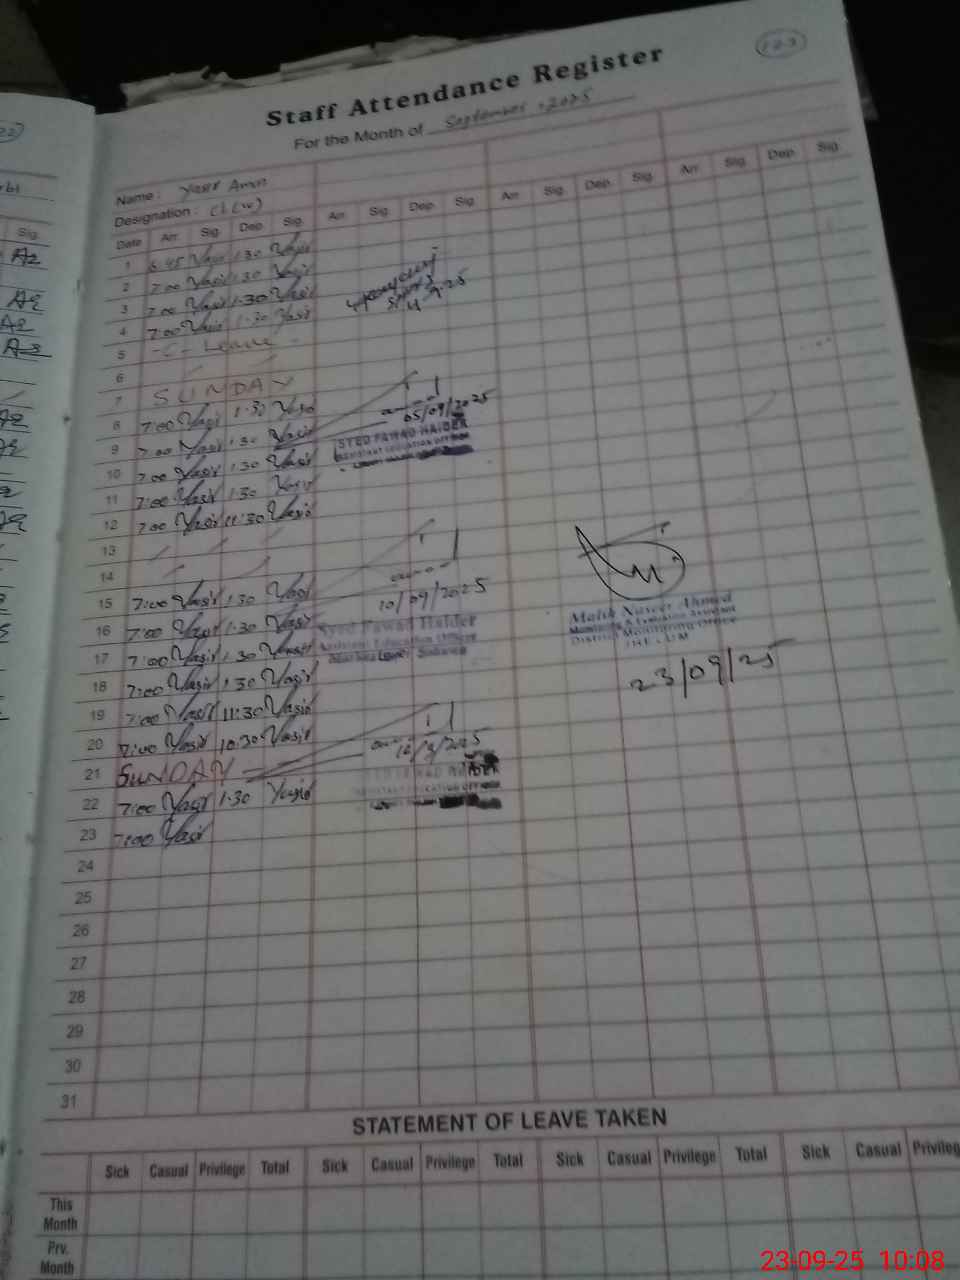 123
Staff Attendance Register
For the Month of September, 2025
Name : Yasir Amin
Designation : C(IV)
Date Arr. Sig. Dep. Sig. Arr. Sig. Dep. Sig. Arr. Sig. Dep. Sig. Arr. Sig. Dep. Sig.
1 6:45 Yasir 1:30 Yasir
2 7:00 Yasir 1:30 Yasir
3 7:00 Yasir 1:30 Yasir
4 7:00 Yasir 1:30 Yasir
5 -C- Leave -
6
7 SUNDAY
8 7:00 Yasir 1:30 Yasir
05/09/2025
SYED FAWAD HAIDER
ASSISTANT EDUCATION OFFICER
9 7:00 Yasir 1:30 Yasir
10 7:00 Yasir 1:30 Yasir
11 7:00 Yasir 1:30 Yasir
12 7:00 Yasir 11:30 Yasir
13
14
15 7:00 Yasir 1:30 Yasir
10/09/2025
Syed Fawad Haider
Assistant Education Officer
16 7:00 Yasir 1:30 Yasir
17 7:00 Yasir 1:30 Yasir
18 7:00 Yasir 1:30 Yasir
19 7:00 Yasir 11:30 Yasir
20 7:00 Yasir 10:30 Yasir
Malik Naseer Ahmed
Monitoring & Evaluation Assistant
District Monitoring Office
JHELUM
23/09/25
21 SUNDAY
22 7:00 Yasir 1:30 Yasir
23 7:00 Yasir
24
25
26
27
28
29
30
31
STATEMENT OF LEAVE TAKEN
Sick Casual Privilege Total Sick Casual Privilege Total Sick Casual Privilege Total Sick Casual Privileg
This Month
Prv. Month
23-09-25 10:08